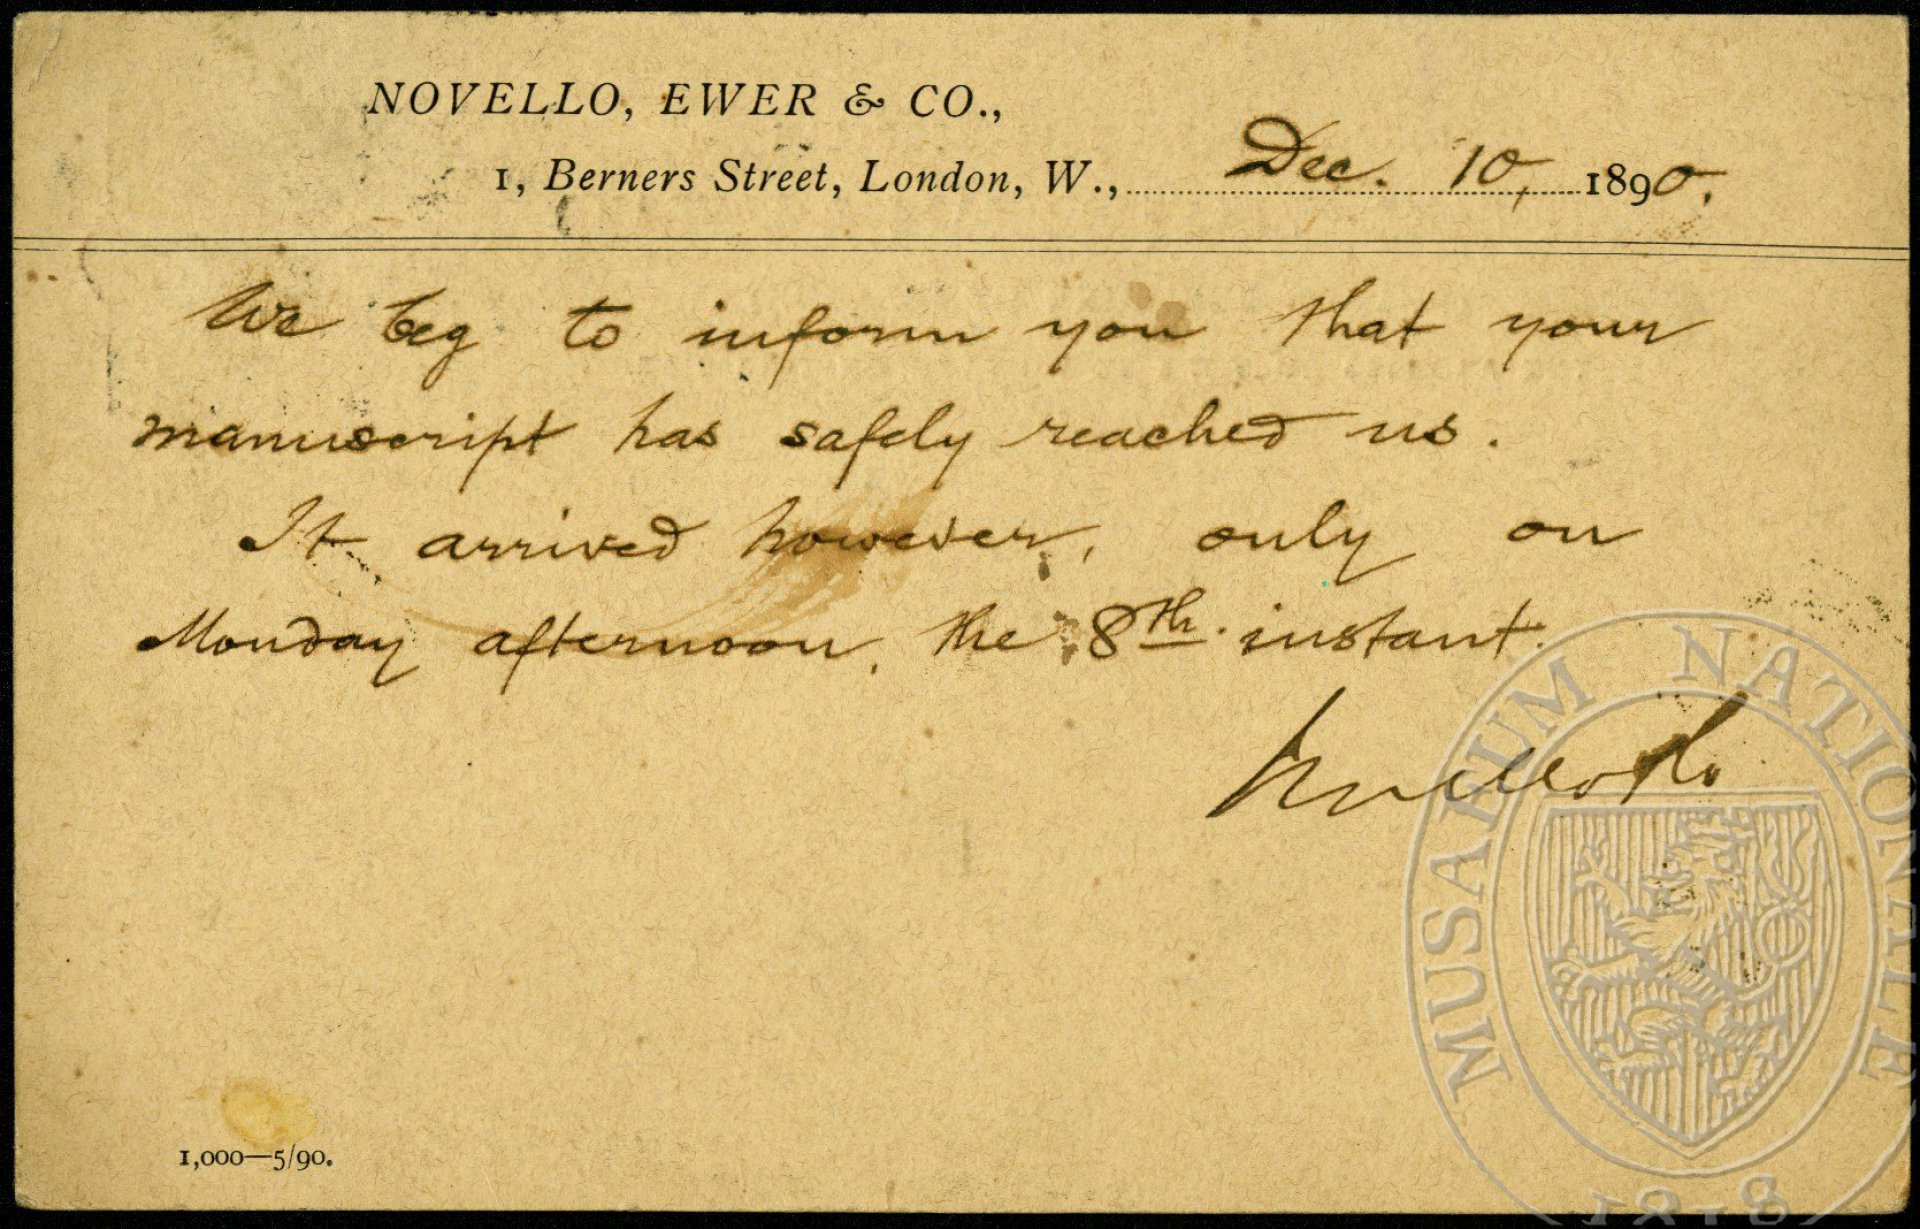 NOVELLO, EWER & CO.,
1, Berners Street, London, W., Dec. 10, 1890.
We beg to inform you that your
manuscript has safely reached us.
It arrived however, only on
Monday afternoon, the 8th. instant.
1,000—5/90.
MUSAEUM NATIONALE
1818